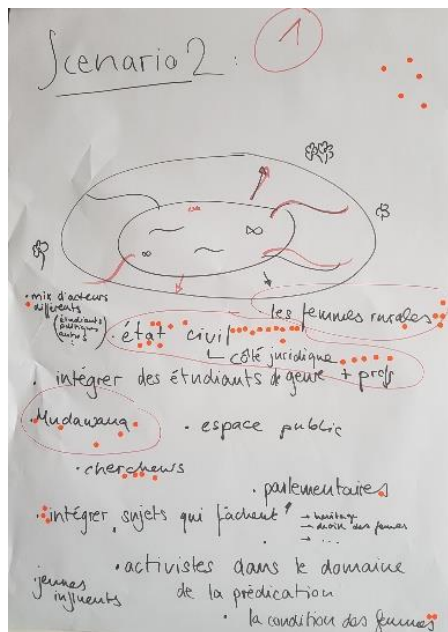 Scenario 2 :
1
• mix d'acteurs
différents
(étudiants
politiques
autres)
les femmes rurales
• état civil
côté juridique
• intégrer des étudiants de genre + profs
• Mudawana
• espace public
• chercheurs
• parlementaires
• intégrer sujets qui fâchent
→ héritage
→ droits des femmes
→ ...
• activistes dans le domaine
de la prédication
jeunes
influents
• la condition des femmes